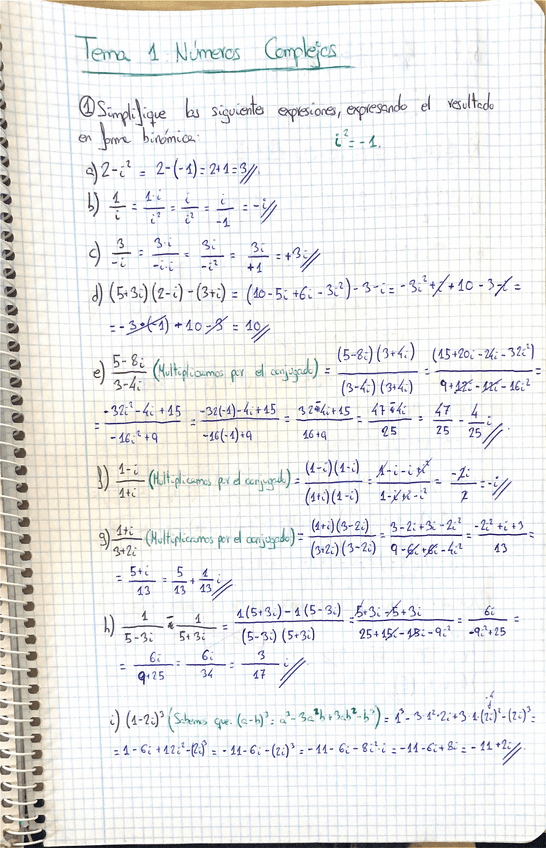 Tema 1 Números Complejos
① Simplifique las siguientes expresiones, expresando el resultado
en forma binómica: i² = -1.
a) 2-i² = 2-(-1) = 2+1 = 3//
b) 1/i = 1·i/i² = i/i² = i/-1 = -i//
c) 3/-i = 3·i/-i·i = 3i/-i² = 3i/+1 = +3i//
d) (5+3i)(2-i)-(3+i) = (10-5i+6i-3i²)-3-i = -3i²+i+10-3-i =
= -3·(-1)+10-3 = 10//
e) 5-8i/3-4i (Multiplicamos por el conjugado) = (5-8i)(3+4i)/(3-4i)(3+4i) = (15+20i-24i-32i²)/9+12i-12i-16i² =
= -32i²-4i+15/-16i²+9 = -32(-1)-4i+15/-16(-1)+9 = 32-4i+15/16+9 = 47-4i/25 = 47/25 - 4/25 i//
f) 1-i/1+i (Multiplicamos por el conjugado) = (1-i)(1-i)/(1+i)(1-i) = 1-i-i+i²/1-i+i-i² = -2i/2 = -i//
g) 1+i/3+2i (Multiplicamos por el conjugado) = (1+i)(3-2i)/(3+2i)(3-2i) = 3-2i+3i-2i²/9-6i+6i-4i² = -2i²+i+3/13 =
= 5+i/13 = 5/13 + 1/13 i//
h) 1/5-3i - 1/5+3i = 1(5+3i)-1(5-3i)/(5-3i)(5+3i) = 5+3i-5+3i/25+15i-15i-9i² = 6i/-9i²+25 =
= 6i/9+25 = 6i/34 = 3/17 i//
i) (1-2i)³ (Sabemos que: (a-b)³ = a³-3a²b+3ab²-b³) = 1³-3·1²·2i+3·1·(2i)²-(2i)³ =
= 1-6i+12i²-(2i)³ = -11-6i-(2i)³ = -11-6i-8i²·i = -11-6i+8i = -11+2i//